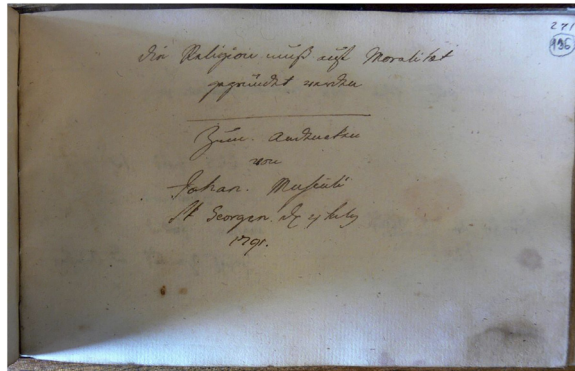 271
196
die Religion muß auf Moralitet
gegründet werden
Zum Andencken
von
Johan.
St Georgen
1791.